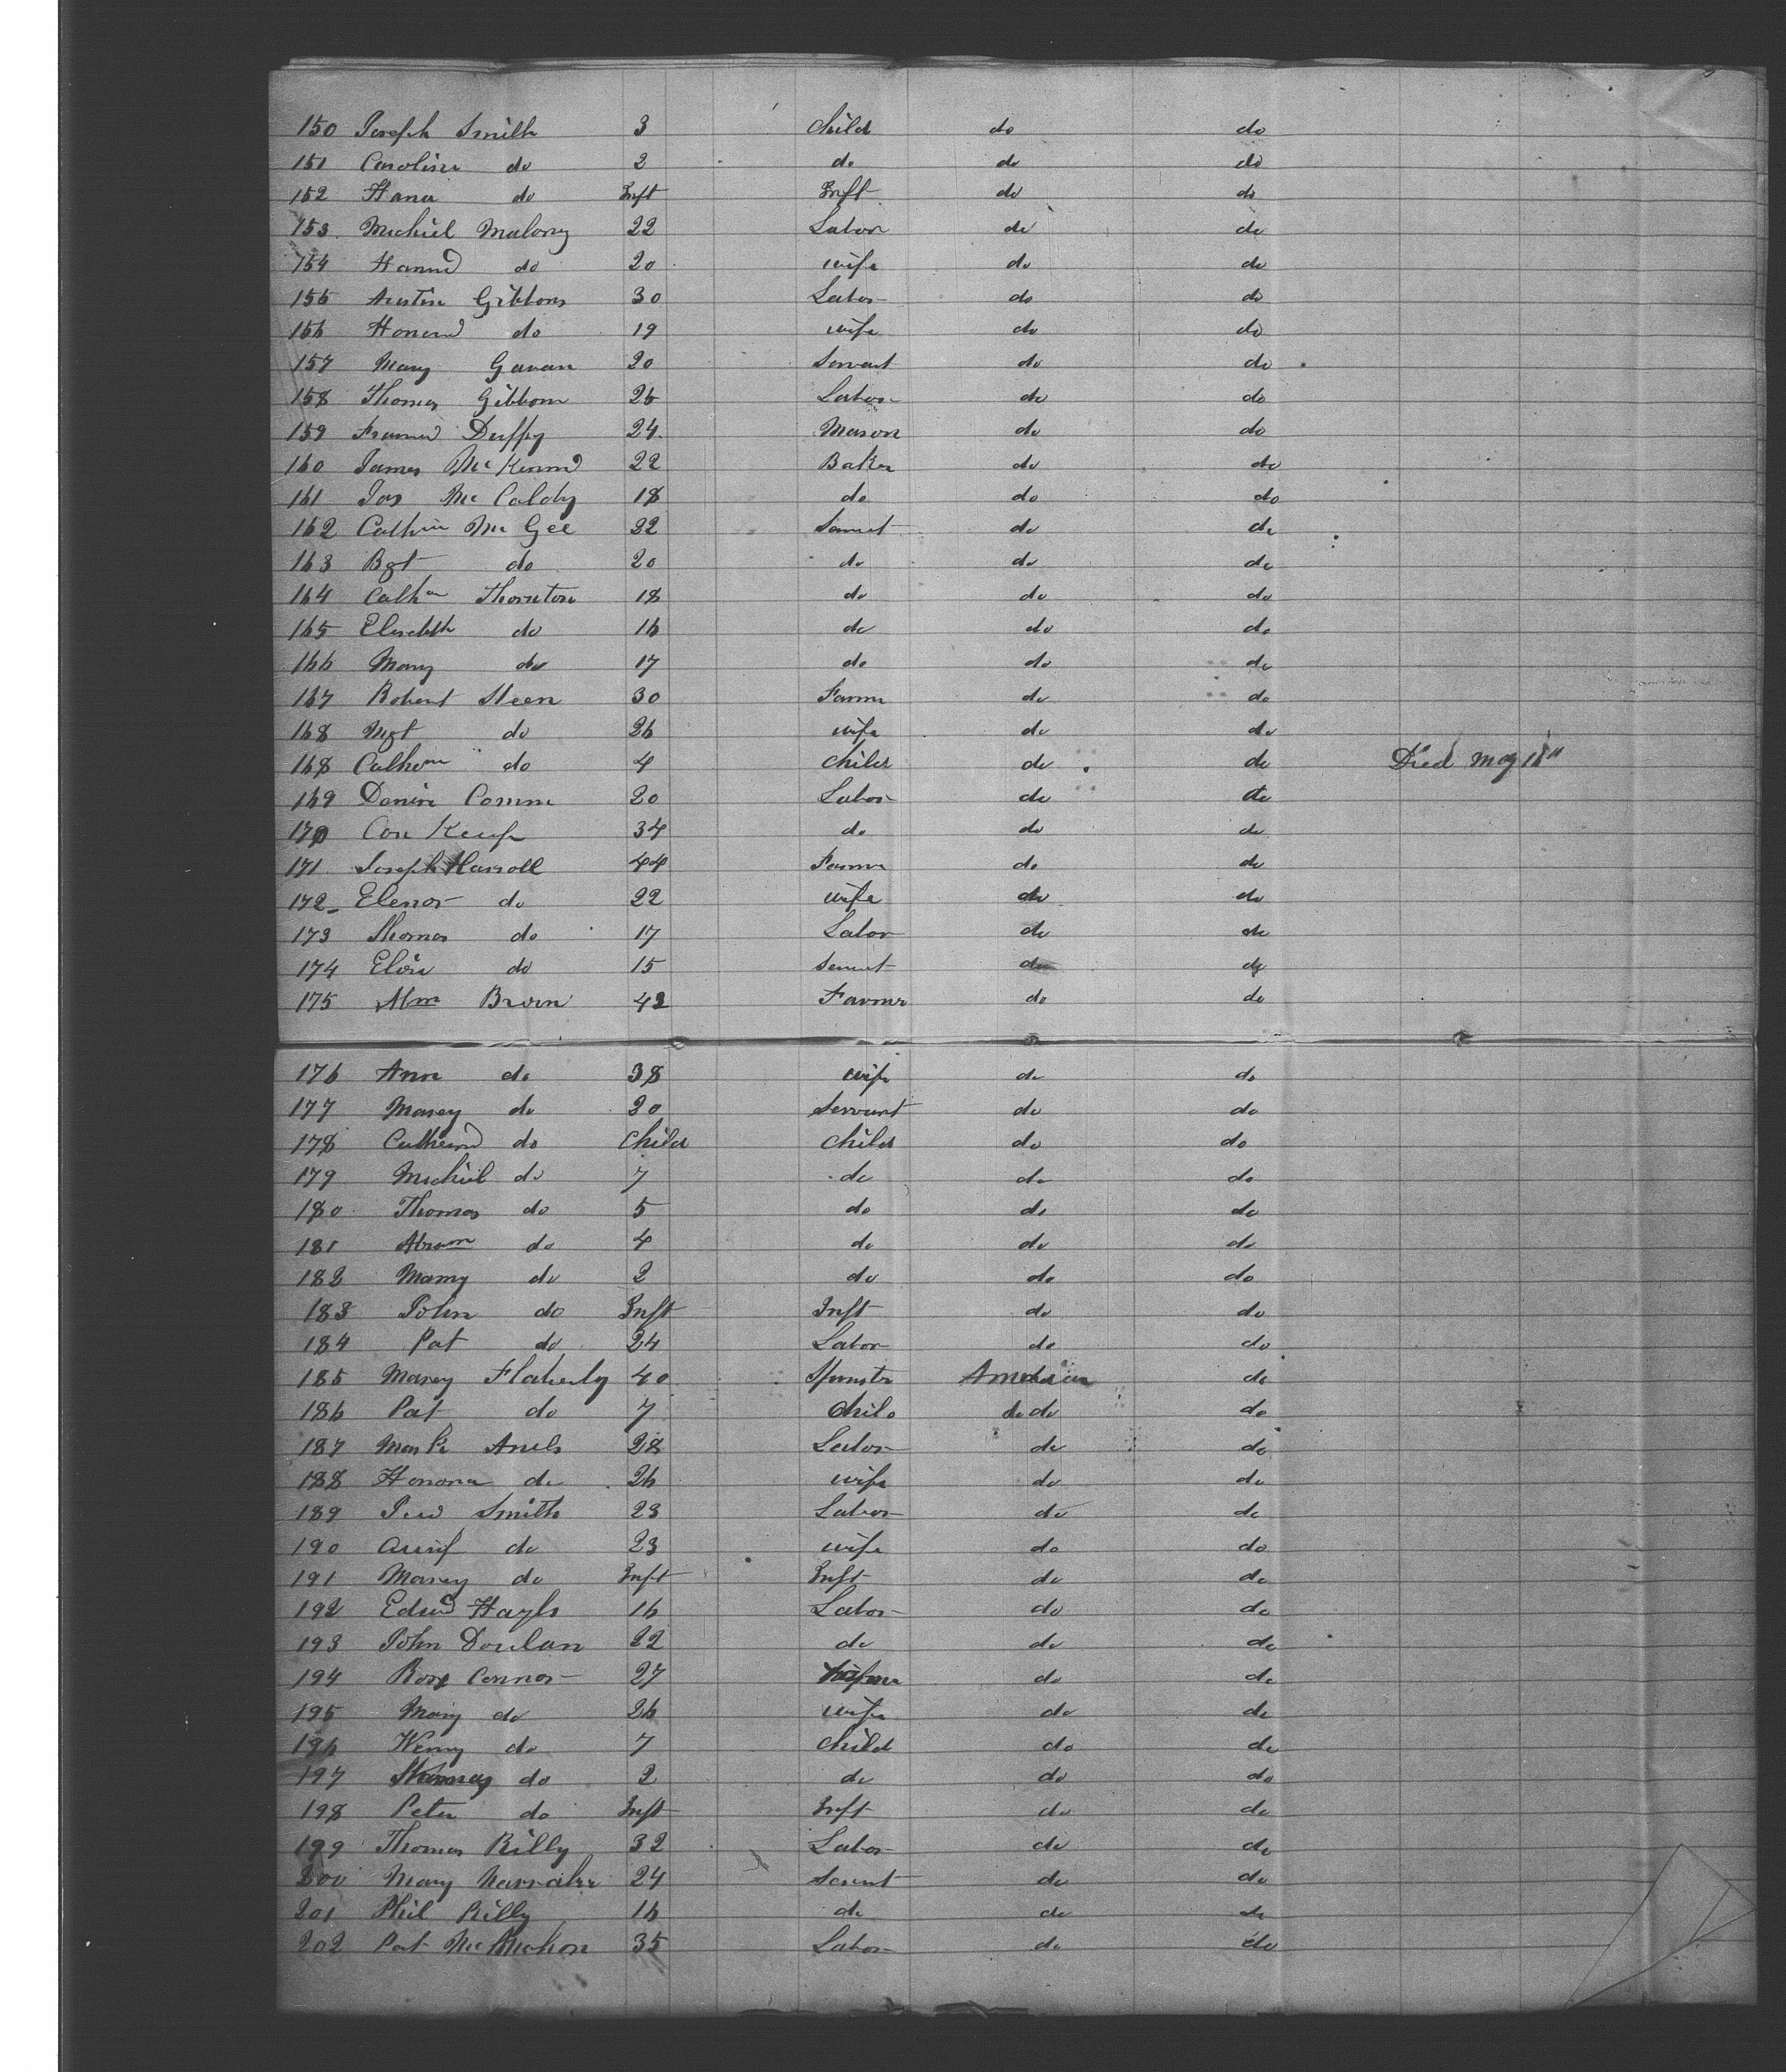 150 Joseph Smith 3 Child do do
151 Caroline do 2 do do do
152 Hana do Inft Inft do do
153 Michiel Malony 22 Labor do do
154 Hannd do 20 wife do do
155 Austin Gibbons 30 Labor do do
156 Honrd do 19 wife do do
157 Mary Gavan 20 Servant do do
158 Thomas Gibbons 25 Labor do do
159 Duffy 24 Mason do do
160 James McKennd 22 Baker do do
161 Jas Mc 18 do do do
162 Mc Gee 22 do do
163 Bgt do 20 do do do
164 Cathn Thornton 18 do do do
165 do 16 do do do
166 Mary do 17 do do do
167 Robert Steen 30 Farmr do do
168 Mgt do 26 wife do do
168 do 4 Child do do Died May 18"
169 20 Labor do do
170 Con 34 do do do
171 Joseph Harroll 44 Farmr do do
172 Elenor do 22 wife do do
173 Thomas do 17 Labor do do
174 do 15 do do
175 Brown 42 Farmer do do
176 Ann do 38 wife do do
177 Marey do 20 Servant do do
178 do Child Child do do
179 Michiel do 7 do do do
180 Thomas do 5 do do do
181 Abram do 4 do do do
182 do 2 do do do
183 John do Inft Inft do do
184 Pat do 24 Labor do do
185 Marey Flaherty 40 do
186 Pat do 7 Child do do do
187 28 Labor do do
188 Honora do 26 wife do do
189 Smith 23 Labor do do
190 do 23 wife do do
191 Marey do Inft Inft do do
192 16 Labor do do
193 John Doulan 22 do do do
194 Connor 27 do do
195 Mary do 26 wife do do
196 do 7 Child do do
197 do 2 do do do
198 Peter do Inft Inft do do
199 Thomas Rilly 32 Labor do do
200 Mary 24 do do
201 Phil Rilly 16 do do do
202 Pat McMahon 35 Labor do do